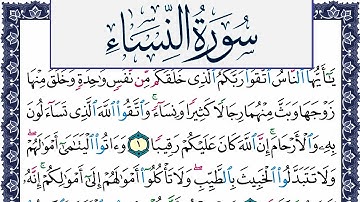 سُورَةُ النِّسَاءِ
يَٰٓأَيُّهَا ٱلنَّاسُ ٱتَّقُوا۟ رَبَّكُمُ ٱلَّذِى خَلَقَكُم مِّن نَّفْسٍ وَٰحِدَةٍ وَخَلَقَ مِنْهَا
زَوْجَهَا وَبَثَّ مِنْهُمَا رِجَالًا كَثِيرًا وَنِسَآءً ۚ وَٱتَّقُوا۟ ٱللَّهَ ٱلَّذِى تَسَآءَلُونَ
بِهِۦ وَٱلْأَرْحَامَ ۚ إِنَّ ٱللَّهَ كَانَ عَلَيْكُمْ رَقِيبًا ١ وَءَاتُوا۟ ٱلْيَتَٰمَىٰٓ أَمْوَٰلَهُمْ ۖ
وَلَا تَتَبَدَّلُوا۟ ٱلْخَبِيثَ بِٱلطَّيِّبِ ۖ وَلَا تَأْكُلُوٓا۟ أَمْوَٰلَهُمْ إِلَىٰٓ أَمْوَٰلِكُمْ ۚ إِنَّهُۥ